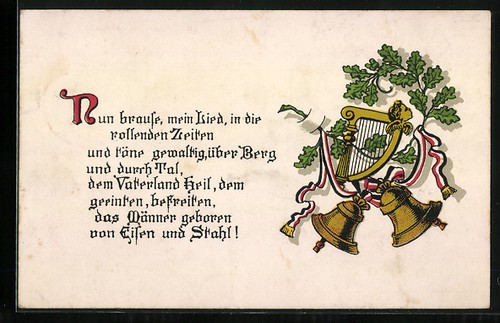 Nun brause, mein Lied, in die
rollenden Zeiten
und töne gewaltig, über Berg
und durch Tal,
dem Vaterland Heil, dem
geeinten, befreiten,
das Männer geboren
von Eisen und Stahl!